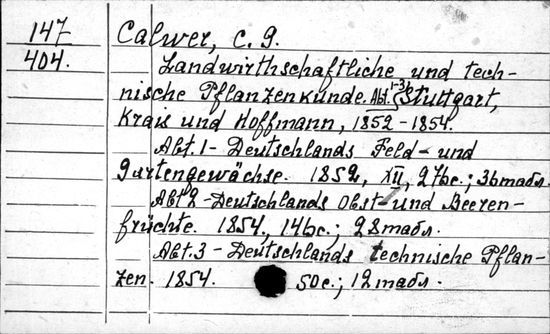 147
404.
Calwer, C. G.
Landwirthschaftliche und tech-
nische Pflanzenkunde. Abt. 1-3. Stuttgart,
Krais und Hoffmann, 1852-1854.
Abt. 1 - Deutschlands Feld- und
Gartengewächse. 1852, XII, 27 bc.; 36 табл.
Abt 2 - Deutschlands Obst- und Beeren-
früchte. 1854, 14 bc.; 28 табл.
Abt. 3 - Deutschlands technische Pflan-
zen. 1854. 50 c.; 12 табл.